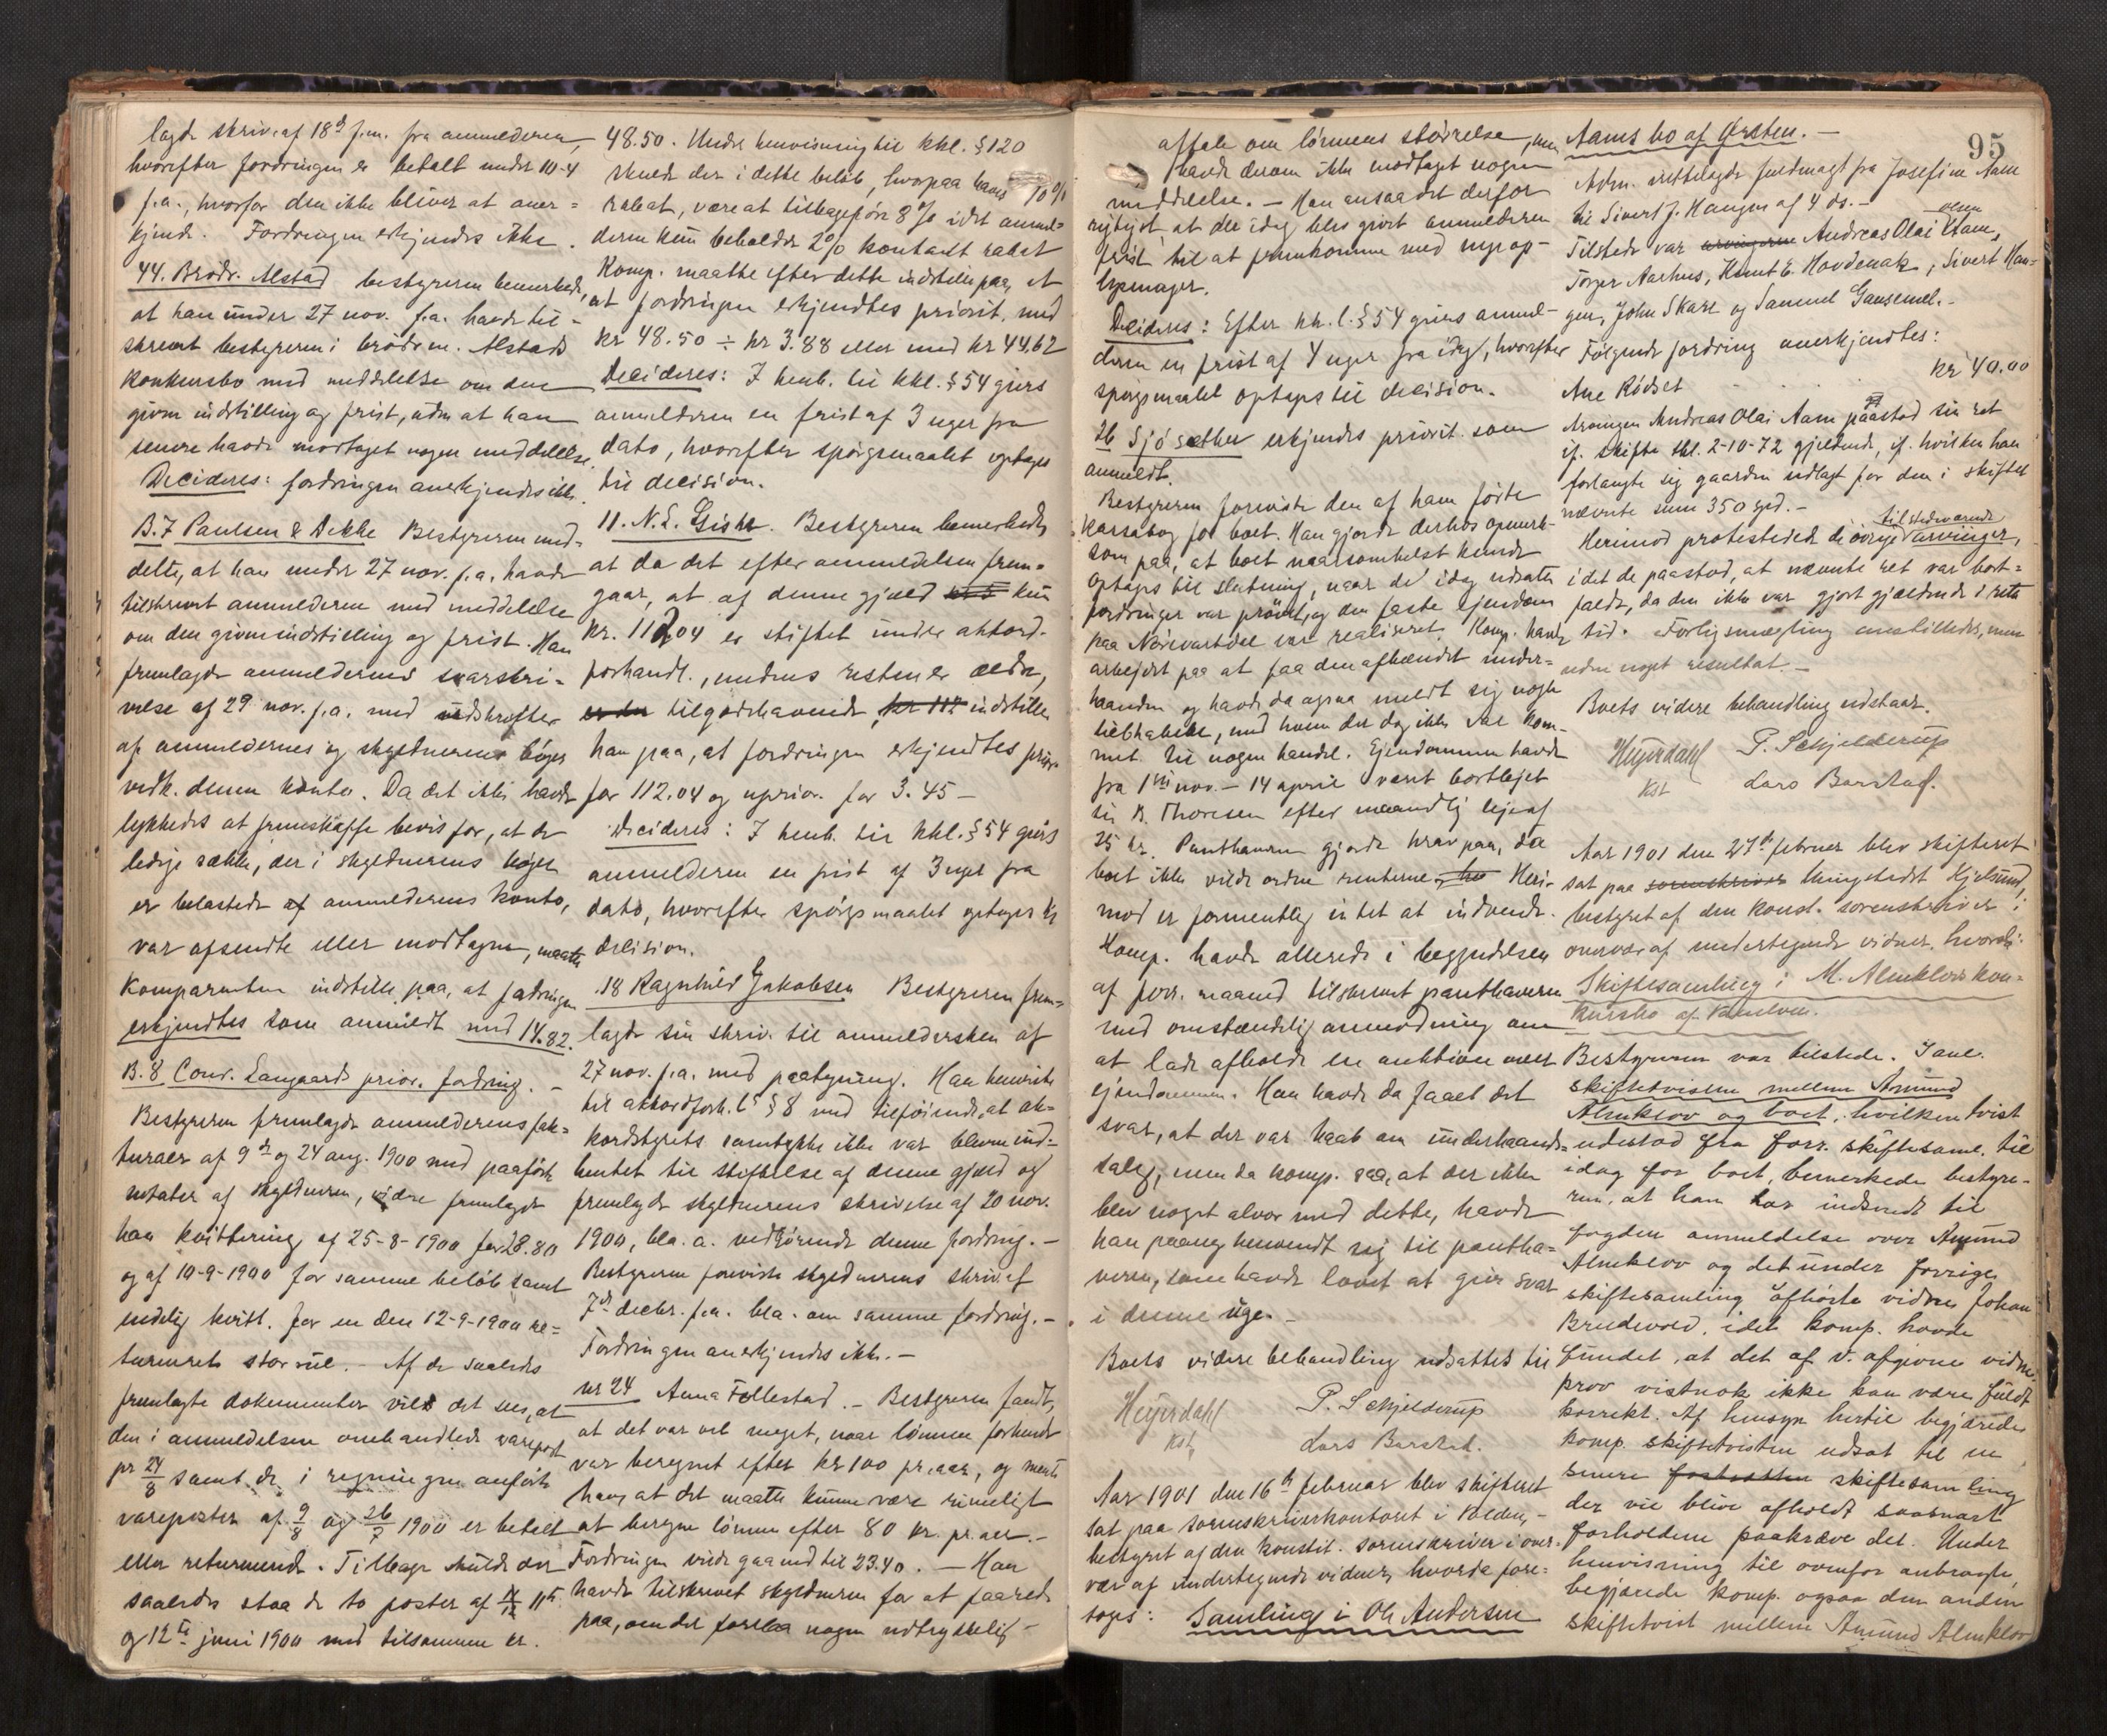 lagde skriv. af 18de f.m. fra anmelderen,
hvorefter fordringen er betalt under 10-4
f.a., hvorfor den ikke bliver at aner=
kjende. Fordringen erkjendes ikke.
44. Brödr. Alstad bestyreren bemerkede,
at han under 27 nov. f.a. havde til-
skrevet bestyreren i brödrene Alstads
konkursbo med meddelelse om den
givne indstilling og frist, uden at han
senere havde modtaget nogen meddelelse.
Decideres: fordringen anerkjendes ikke.
B.7 Paulsen & Dekke Bestyreren med-
delte, at han under 27 nov. f.a. havde
tilskrevet anmelderen med meddelelse
om den givne indstilling og frist. Han
fremlagde anmelderens svarskri-
velse af 29 nov. f.a. med udskrifter
af anmeldernes og skyldnerens böger
vedk. denne konto. Da det ikke havde
lykkedes at fremskaffe bevis for, at de
ledige sække, der i skyldnerens böger
er belastede af anmelderens konto,
var afsendte eller modtagne, maatte
komparenten indstille paa, at fordringen
erkjendtes som anmeldt med 14.82.
B.8 Conr. Langaards prior. fordring. -
Bestyreren fremlagde anmelderens fak-
turaer af 9de og 24 aug. 1900 med paaförte
notater af skyldneren, videre fremlagde
han kvittering af 25-8-1900 for 28.80
og af 10-9-1900 for samme belöb samt
endelig kvitt. for en den 12-9-1900 re=
turneret stor rul. - Af de saaledes
fremlagte dokumenter vil det sees, at
den i anmeldelsen omhandlede varepost
pr 24/8 samt de i regningen anförte
vareposter af 9/8 og 26/7 1900 er betalt
eller returnerede. Tilbage skulde der
saaledes staa de to poster af 11te
og 12te juni 1900 med tilsammen kr.
48.50. Under henvisning til kkl. § 120
skulde der i dette belöb, hvorpaa havdes 10%
rabat, være at tilbageföre 8% idet anmel-
deren kun beholder 2% kontant rabat
Komp. maatte efter dette indstille paa, at
at fordringen erkjendtes priorit. med
kr 48.50 ÷ kr 3.88 eller med kr 44.62
Decideres: I henh. til kkl. § 54 gives
anmelderen en frist af 3 uger fra
dato, hvorefter spörgsmaalet optages
til decision.
11. N. L. Giske. Bestyreren bemerkede,
at da det efter anmeldelsen frem-
gaar, at af denne gjæld kun
kr. 112.04 er stiftet under akkord-
forhandl., medens resten er ældre,
er den tilgodehavende, kr 112 indstiller
han paa, at fordringen erkjendtes prior.
for 112.04 og uprior. for 3.45 -
Decideres: I henh. til kkl. § 54 gives
anmelderen en frist af 3 uger fra
dato, hvorefter spörgsmaalet optages til
decision.
18 Ragnhild Jakobsen Bestyreren frem-
lagde sin skriv. til anmeldersken af
27 nov. f.a. med paategning. Han henviste
til akkordforh. l. § 8 med tilföiende, at ak-
kordstyrets samtykke ikke var bleven ind-
hentet til stiftelse af denne gjæld og
fremlagde skyldnerens skrivelse af 20 nov.
1900, bla. a. vedrörende denne fordring. -
Bestyreren foreviste skyldnerens skriv. af
7de decbr. f.a. bla. om samme fordring. -
Fordringen anerkjendes ikke. -
nr 24 Anna Follestad. - Bestyreren fandt,
at det var vel meget, naar lönnen forhen
var beregnet efter kr 100 pr. aar, og mente
han, at det maatte kunne være rimeligt
at beregne lönnen efter 80 kr. pr. aar. -
Fordringen vilde gaa ned til 23.40. - Han
havde tilskrevet skyldneren for at faa rede
paa, om der forelaa nogen udtrykkelig
aftale om lönnens störrelse, men
havde derom ikke modtaget nogen
meddelelse. - Han ansaa det derfor
rigtigst, at der idag blev givet anmelderen
frist til at fremkomme med nye op-
lysninger.
Decideres: Efter kk.l. § 54 gives anmel-
deren en frist af 4 uger fra idag, hvorefter
spörgsmaalet optages til decision.
26 Sjösæther erkjendes priorit. som
anmeldt.
Bestyreren foreviste den af ham förte
kassabog for boet. Han gjorde derhos opmerk-
som paa, at boet naarsomhelst kunde
optages til slutning, naar de idag udsatte
fordringer var prövet og den faste ejendom
paa Nörevartdal var realiseret. Komp. havde
arbejdet paa at faa den afhændet under-
haanden og havde da ogsaa meldt sig nogle
liebhabere, med hvem der dog ikke var kom-
met til nogen handel. Ejendommen havde
fra 1ste nov. - 14 april været bortlejet
til B. Thoresen efter maanedlig leje af
25 kr. Panthaveren gjorde krav paa, da
boet ikke vilde ordne renterne. Heri-
mod er formentlig intet at indvende.
Komp. havde allerede i begyndelsen
af forr. maaned tilskrevet panthaveren
med omstændelig anmodning om
at lade afholde en auktion over
ejendommen. Han havde da faaet det
svar, at der var haab om underhaands-
salg, men da komp. saa, at der ikke
blev noget alvor med dette, havde
han paany henvendt sig til pantha-
veren, som havde lovet at give svar
i denne uge. -
Boets videre behandling udsattes til
Heyerdahl P. Schjelderup
kst Lars Barstad.
Aar 1901 den 16de februar blev skifteret
sat paa sorenskriverkontoret i Volden,
bestyret af den konstit. sorenskriver i over-
vær af undertegnede vidner, hvorda fore-
toges: Samling i Ole Andersen
95
Aams bo af Örsten. -
Adm. fremlagde fuldmagt fra Josefine Aam
til Sivert J. Haugen af 4 ds. -
Tilstede var arvingerne Andreas Olai Aam,
Torger Aarhus, Knut E. Hovdenak, Sivert Hau-
gen, John Skare og Samuel Gausemel. -
Følgende fordring anerkjendtes:
Ane Rödset kr 40.00
Arvingen Andreas Olai Aam paastod sin ret
if. skifte skl. 2-10-72 gjeldende, if. hvilken han
forlangte sig gaarden udlagt for den i skiftet
nævnte sum 350 spd. -
Herimod protesterede de övrige tilstedeværende arvinger,
idet de paastod, at nævnte ret var bort-
faldt, da den ikke var gjort gjældende i rette
tid. Forligsmægling anstilledes, men
uden noget resultat. -
Boets videre behandling udstaar.
Heyerdahl P. Schjelderup
kst Lars Barstad.
Aar 1901 den 27de februar blev skifteret
sat paa sorenskriver thingstedet Hjelsund,
bestyret af den konst. sorenskriver i
overvær af undertegnede vidner, hvorda:
Skiftesamling i M. Almklovs kon-
kursbo af Vanelven.
Bestyreren var tilstede. I anl.
skiftetvisten mellem Amund
Almklov og boet, hvilken tvist
udestod fra forr. skiftesaml. til
idag for boet, bemerkede bestyre-
ren, at han har indsendt til
fogden anmeldelse over Amund
Almklov og det under forrige
skiftesamling afhörte vidne Johan
Brudevold, idet komp. havde
fundet, at det af v. afgivne vidne-
prov vistnok ikke kan være fuldt
korrekt. Af hensyn hertil begjærede
komp. skiftetvisten udsat til en
senere skiftesamling
der vil blive afholdt saasnart
forholdene paakræve det. Under
henvisning til ovenfor anbragte,
begjærede komp. ogsaa den anden
skiftetvist mellem Amund Almklov